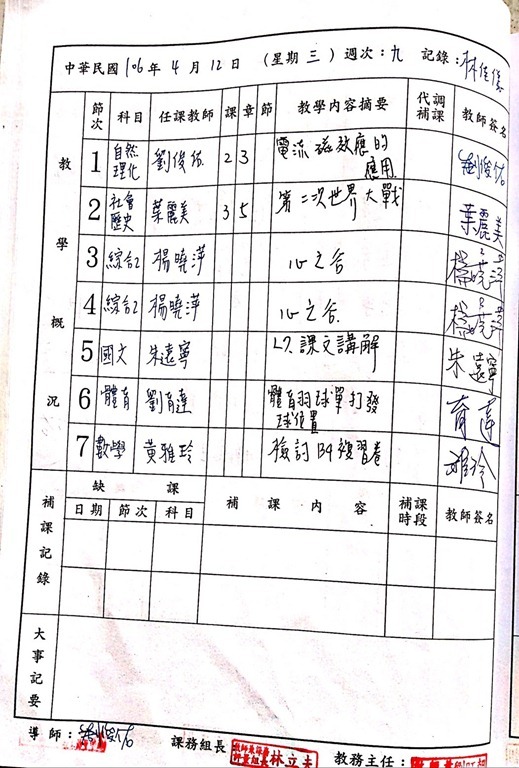 中華民國 106 年 4 月 12 日 (星期 三) 週次:九 記錄:林佳
教學概況
節次 科目 任課教師 課 章 節 教學內容摘要 代調補課 教師簽名
1 自然理化 劉俊佑 2 3 電流磁效應的應用 劉俊佑
2 社會歷史 葉麗美 3 5 第二次世界大戰 葉麗美
3 綜合2 楊曉萍 心之谷 楊曉萍
4 綜合2 楊曉萍 心之谷. 楊曉萍
5 國文 朱遠寧 L7.課文講解 朱遠寧
6 體育 劉育達 體育羽球單打發球位置 育達
7 數學 黃雅玲 檢討 B4 複習卷 雅玲
補課記錄
缺課 補課內容 補課時段 教師簽名
日期 節次 科目
大事記要
導師:劉俊佑 課務組長 林立 教務主任: